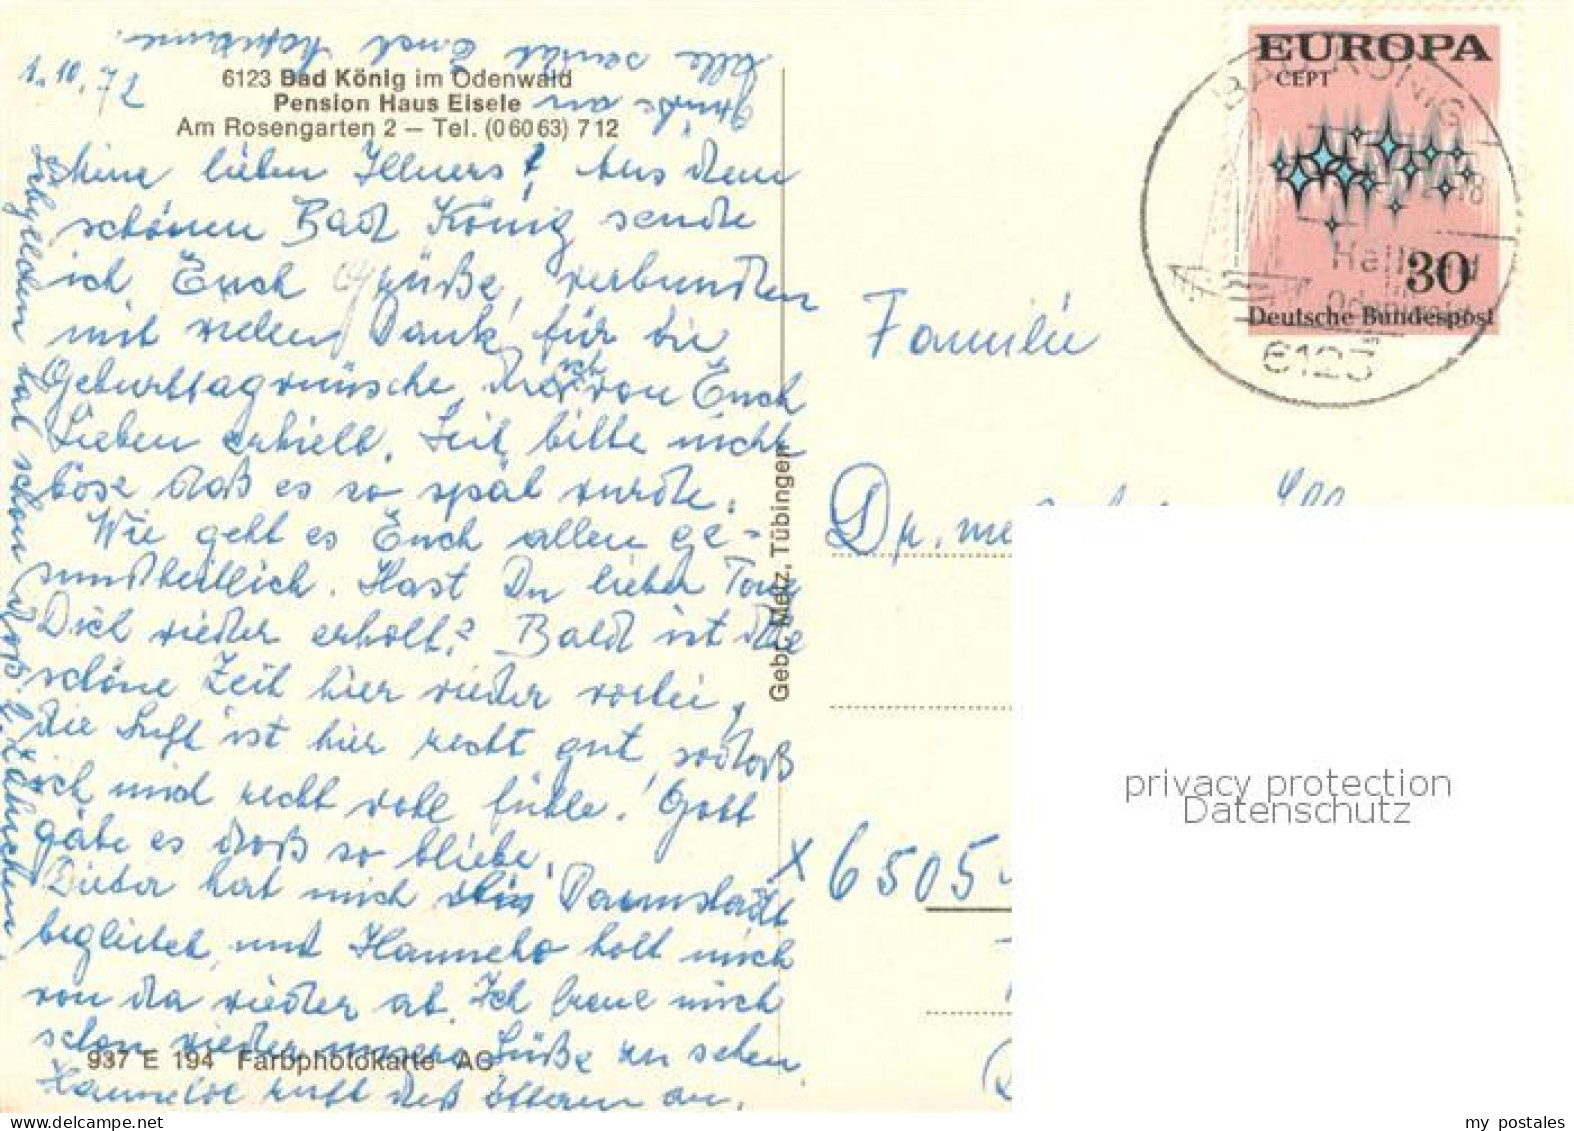 1.10.72
6123 Bad König im Odenwald
Pension Haus Eisele
Am Rosengarten 2 — Tel. (06063) 712
Meine lieben Illners! Aus dem
schönen Bad König sende
ich Euch Grüße, verbunden
mit vielen Dank für die
Geburtstagwünsche, die ich von Euch
Lieben erhielt. Seit bitte nicht
böse daß es so spät wurde.
Wie geht es Euch allen ge-
sundheitlich. Hast Du lieber
Dich wieder erholt? Bald ist die
schöne Zeit hier wieder vorbei,
die Luft ist hier recht gut, sodaß
ich mich recht wohl fühle. Gott
gäbe es daß so bliebe.
Dieter hat mich bis Darmstadt
begleitet und Hannelo holt mich
von da wieder ab. Ich freue mich
schon wieder unsere Süße zu sehen
Hannelor ruft des öfteren an.
hat schon daß 2. Zähnchen.
Grüße an
alle sendet Euch
937 E 194 Farbphotokarte AG
Gebr. Metz, Tübingen
EUROPA
CEPT
30
Deutsche Bundespost
BAD KÖNIG
6123
Familie
Dr. med.
x 6505
privacy protection
Datenschutz
my postales